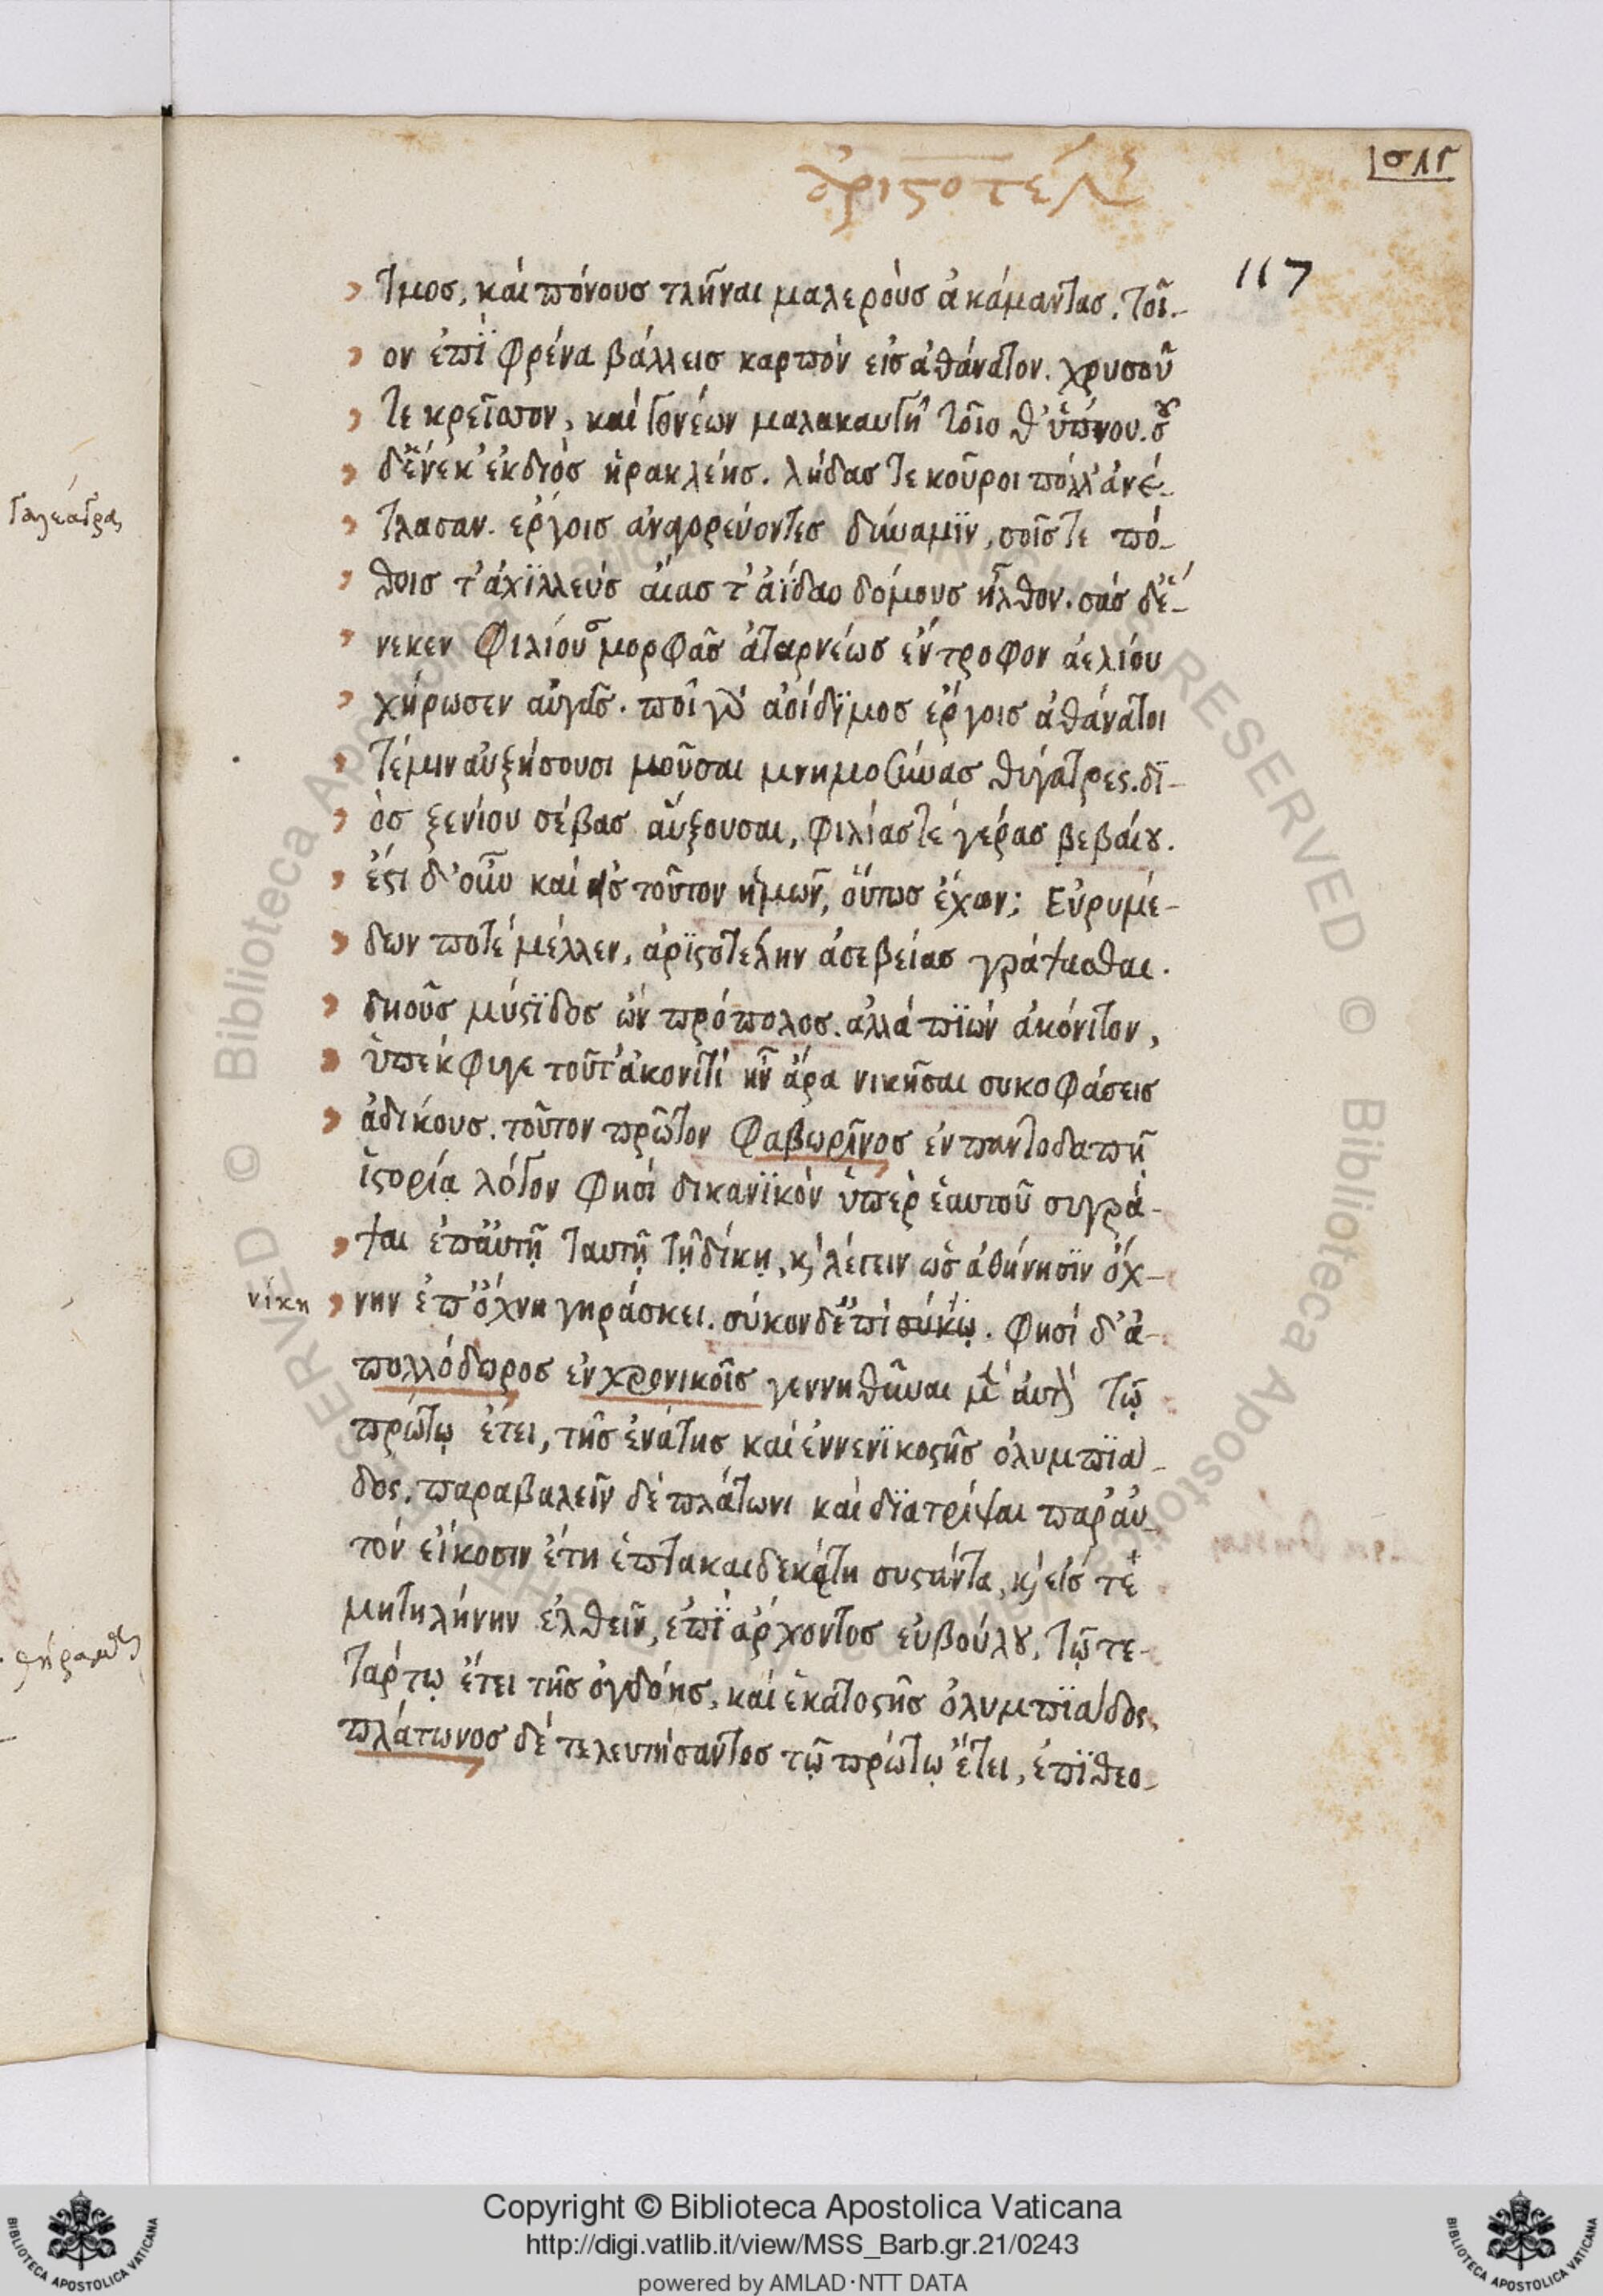 117
τμος, καὶ πόνους τλῆναι μαλεροὺς ἀκάμαντας. τοῖ-
ον ἐπὶ φρένα βάλλεις καρπὸν εἰς ἀθάνατον. χρυσοῦ
τε κρεῖσσον, καὶ γονέων μαλακαυγῆ τοῖο θ' ὕπνου. σοῦ
δ' ἕνεκ' ἐκ διὸς ἡρακλέης. λήδας τε κοῦροι πόλλ' ἀνέ-
τλασαν. ἔργοις ἀναγορεύοντες δύναμιν, σοῖς τε πό-
θοις τ' ἀχιλλεὺς αἴας τ' ἀΐδαο δόμους ἦλθον. σᾶς δ' ἕ-
νεκεν φιλίου μορφᾶς ἀταρνέως ἔντροφον ἀελίου
χήρωσεν αὐγάς. ἀοίδιμος ἔργοις ἀθάνατοι
τέ μιν αὐξήσουσι μοῦσαι μνημοσύνας θύγατρες. δι-
ὸς ξενίου σέβας αὔξουσαι, φιλίας τε γέρας βεβαίου.
ἔστι δ' οὖν καὶ εἰς τοῦτον ἡμῶν, οὕτως ἔχον; Εὐρυμέ-
δων ποτὲ μέλλεν, ἀριστοτέλην ἀσεβείας γράψασθαι.
δηοῦς μύστιδος ὢν πρόπολος. ἀλλὰ πιὼν ἀκόνιτον,
ὑπέκφυγε τοῦτ' ἀκονιτὶ ἦν ἄρα νικῆσαι συκοφάσεις
ἀδίκους. τοῦτον πρῶτον φαβωρῖνος ἐν παντοδαπῇ
ἱστορίᾳ λόγον φησὶ δικανικὸν ὑπὲρ ἑαυτοῦ συγγρά-
ψαι ἐπ' αὐτῇ ταύτῃ τῇ δίκῃ, κὶ λέγειν ὡς ἀθήνησιν ὄχ-
νίκη
νην ἐπ' ὄχνη γηράσκει. σύκον δ' ἐπὶ σύκῳ. φησὶ δ' ἀ-
πολλόδωρος ἐν χρονικοῖς γεννηθῆναι μὲν αὐτὸν τῷ
πρώτῳ ἔτει, τῆς ἐνάτης καὶ ἐννενικοστῆς ὀλυμπιά-
δος. παραβαλεῖν δὲ πλάτωνι καὶ διατρίψαι παρ' αὐ-
τὸν εἴκοσιν ἔτη ἑπτακαιδεκάτη συστάντα, κὶ εἰς τὲ
μητηλήνην ἐλθεῖν, ἐπὶ ἄρχοντος εὐβούλου, τῷ τε-
τάρτῳ ἔτει τῆς ὀγδόης, καὶ ἑκατοστῆς ὀλυμπιάδος.
πλάτωνος δὲ τελευτήσαντος τῷ πρώτῳ ἔτει, ἐπὶ θεο-
Copyright © Biblioteca Apostolica Vaticana
http://digi.vatlib.it/view/MSS_Barb.gr.21/0243
powered by AMLAD·NTT DATA